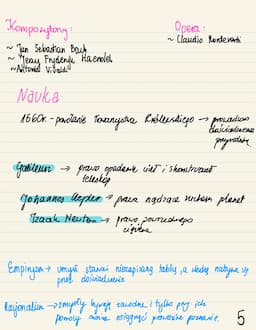 Kompozytorzy:
~ Jan Sebastian Bach
~ Jerzy Fryderyk Haendel
~ Antonio Vivaldi
Opera:
~ Claudio Monteverdi
Nauka
1660r. - powstanie Towarzystwa Królewskiego → prowadzono
doświadczenia
przyrodnicze
Galileusz → prawo spadania ciał i skonstruował
teleskop
Johannes Kepler → prawa rządzące ruchem planet
Izaak Newton → prawo powszechnego
ciążenia
Empiryzm → umysł stanowi niezapisaną tablicę, a wiedzę nabywa się
przez doświadczenie
Racjonalizm → zmysły bywają zawodne i tylko przy ich
pomocy można osiągnąć prawdziwe poznanie.
5